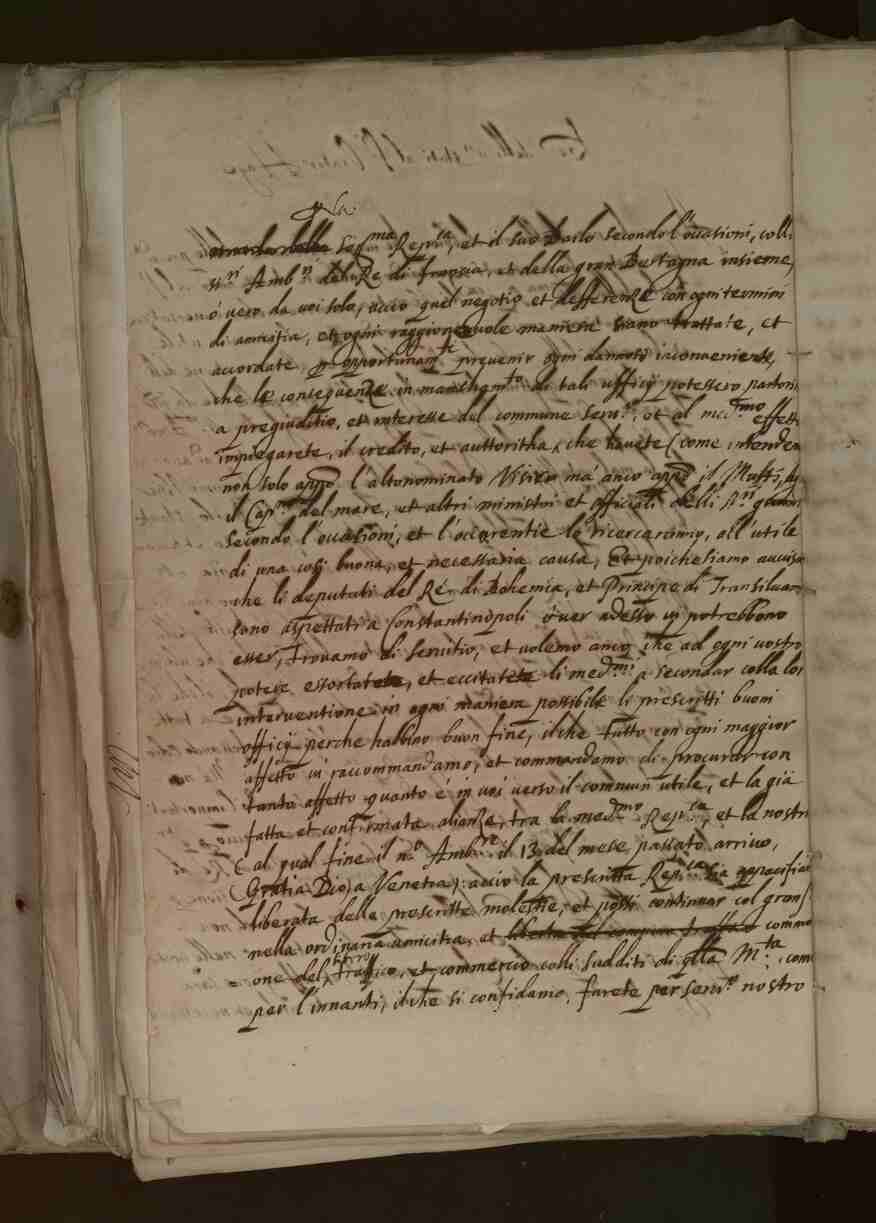 la
Ser.ma Rep.ca, et il suo Bailo secondo l'occasioni, colli
ss.ri Amb.ri del Re di francia, et della gran Bertagna insieme,
ò vero da voi solo, accio quel negotio et differenze con ogni termini
di amicitia, et ogni raggionevuole maniere siano trattate, et
accordate, p opportunam.te prevenir ogni dannoso inconveniente,
che le consequenze in mancham.to di tali ufficij potessero partori
a pregiuditio, et interesse del commune serv.o, et al med.mo effett
impiegarete, il credito, et auttoritha, che havete (come intende
non solo appo l'altonominato Visier ma anco appo il Muffti,
il Cap.n del mare, et altri ministri et officiali delli
secondo l'occasioni, et l'occorentie lo ricercaranno, all utile
di una cosi buona, et necessaria causa, Et poiche siamo avvisa
che li deputati del Ré di Bohemia, et Principe di Transilvan
sono aspettati a Constantinopoli ò ver adesso vi potrebbono
esser, trovamo di servitio, et volemo anco che ad ogni vostro
potere essortate, et eccitate li med.mi a secondar colla lor
interventione in ogni maniera possibile li prescritti buoni
officij perche habbino buon fine, ilche tutto con ogni maggior
affetto vi raccommandamo, et commandamo di procurar con
tanto affetto quanto é in voi verso il commun utile, et la già
fatta et confirmata alianze, tra la med.mo Rep.ca, et la nostr
(al qual fine il n.o Amb.re il 13 del mese passato arrivo,
(Gratia Dio) a Venetia) accio la prescritta Rep.ca sia appacifica
liberata delle prescritte molestie, et possi continuar col gran S
nella ordinaria amicitia, et libertà del commun traffico commu
= one del traffico, et commercio colli sudditi di qlla M.ta, com
per l'innanti, ilche si confidamo, farete per serv.o nostro